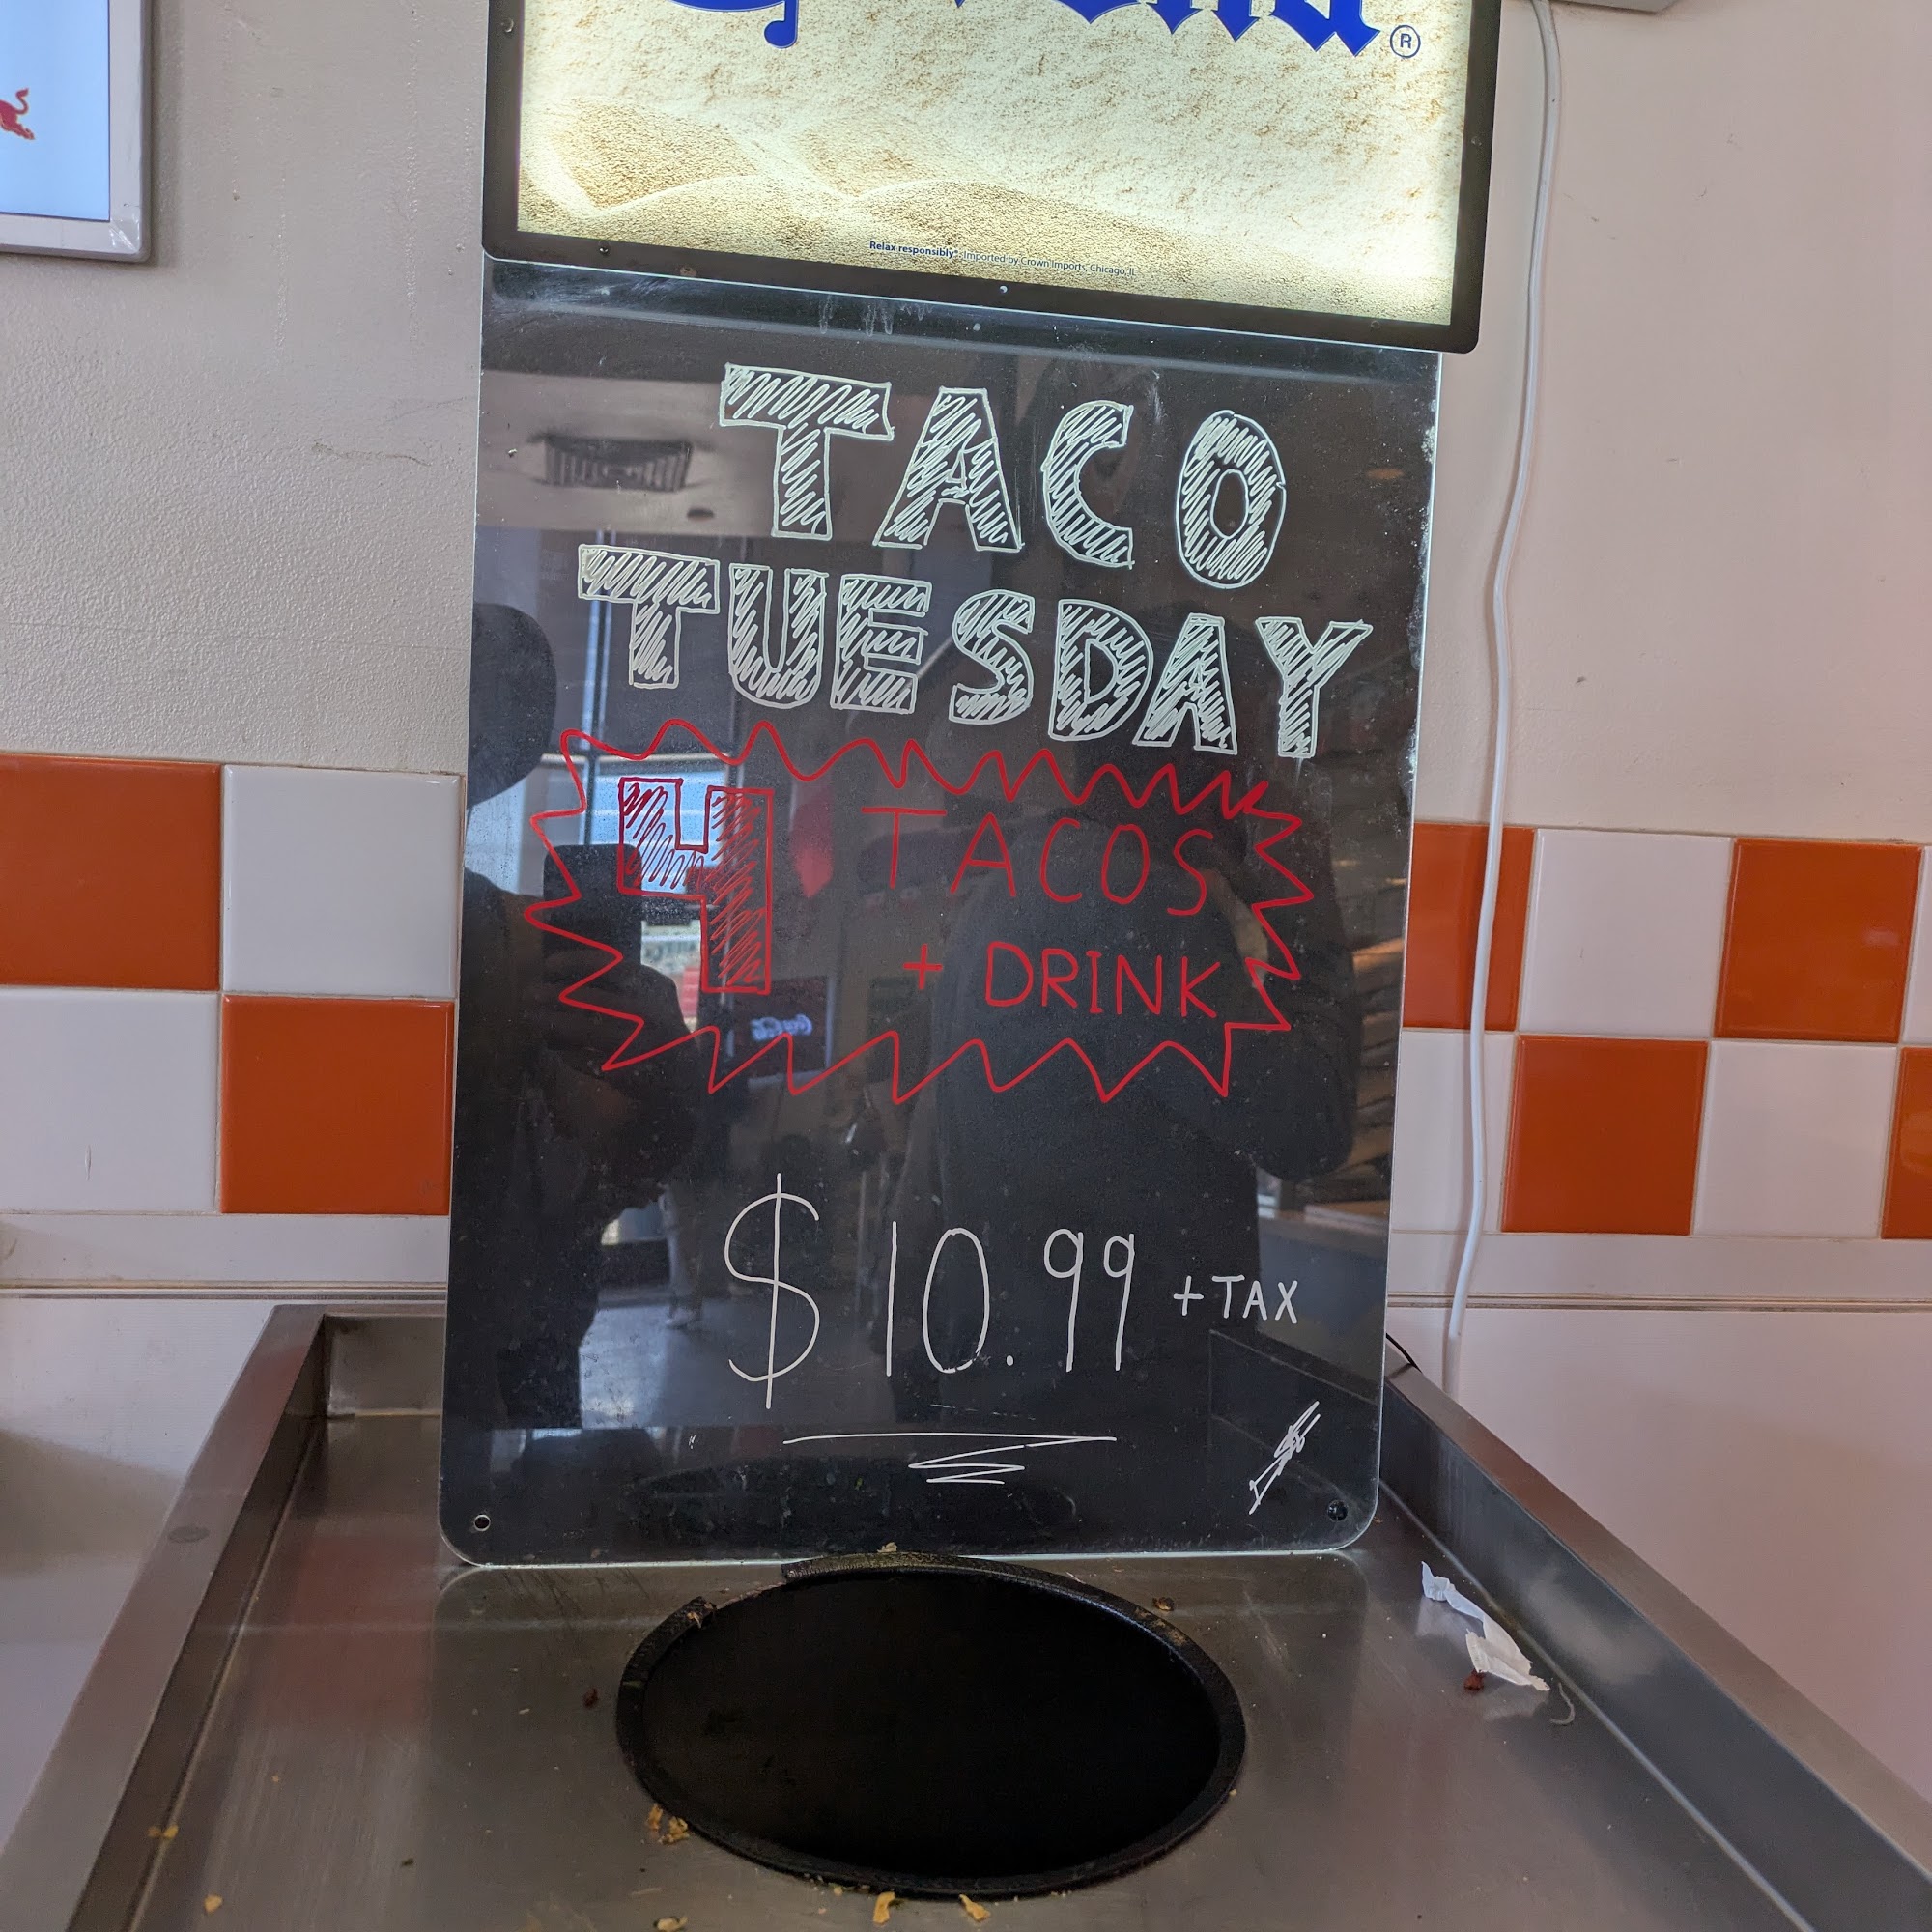 Relax responsibly®. Imported by Crown Imports, Chicago, IL
TACO
TUESDAY
4 TACOS
+ DRINK
$10.99 +TAX